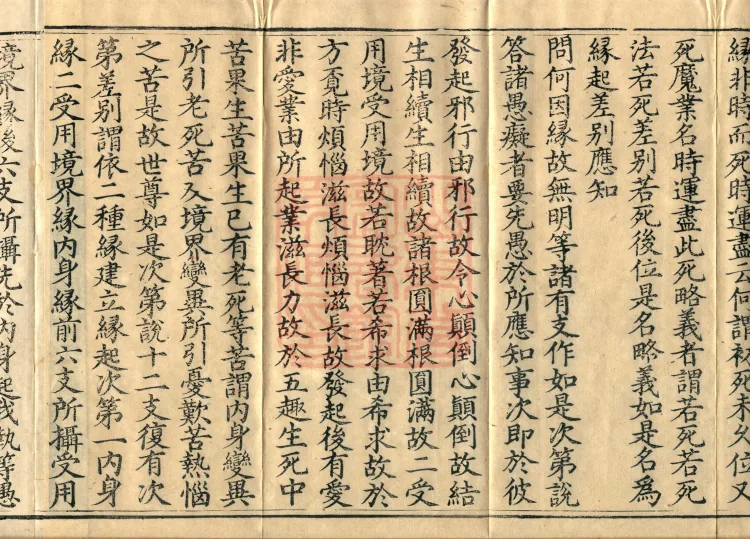 緣非時而死時運盡云何謂初死未久位又
死魔業名時運盡此死略義者謂若死若死
法若死差別若死後位是名略義如是名為
緣起差別應知
問何因緣故無明等諸有支作如是次第說
答諸愚癡者要先愚於所應知事次即於彼
發起邪行由邪行故令心顛倒心顛倒故結
生相續生相續故諸根圓滿根圓滿故二受
用境受用境故若耽著若希求由希求故於
方覓時煩惱滋長煩惱滋長故發起後有愛
非愛業由所起業滋長力故於五趣生死中
苦果生苦果生已有老死等苦謂內身變異
所引老死苦及境界變異所引憂歎苦熱惱
之苦是故世尊如是次第說十二支復有次
第差別謂依二種緣建立緣起次第一內身
緣二受用境界緣內身緣前六支所攝受用
境界緣後六支所攝先於內身起我執等愚